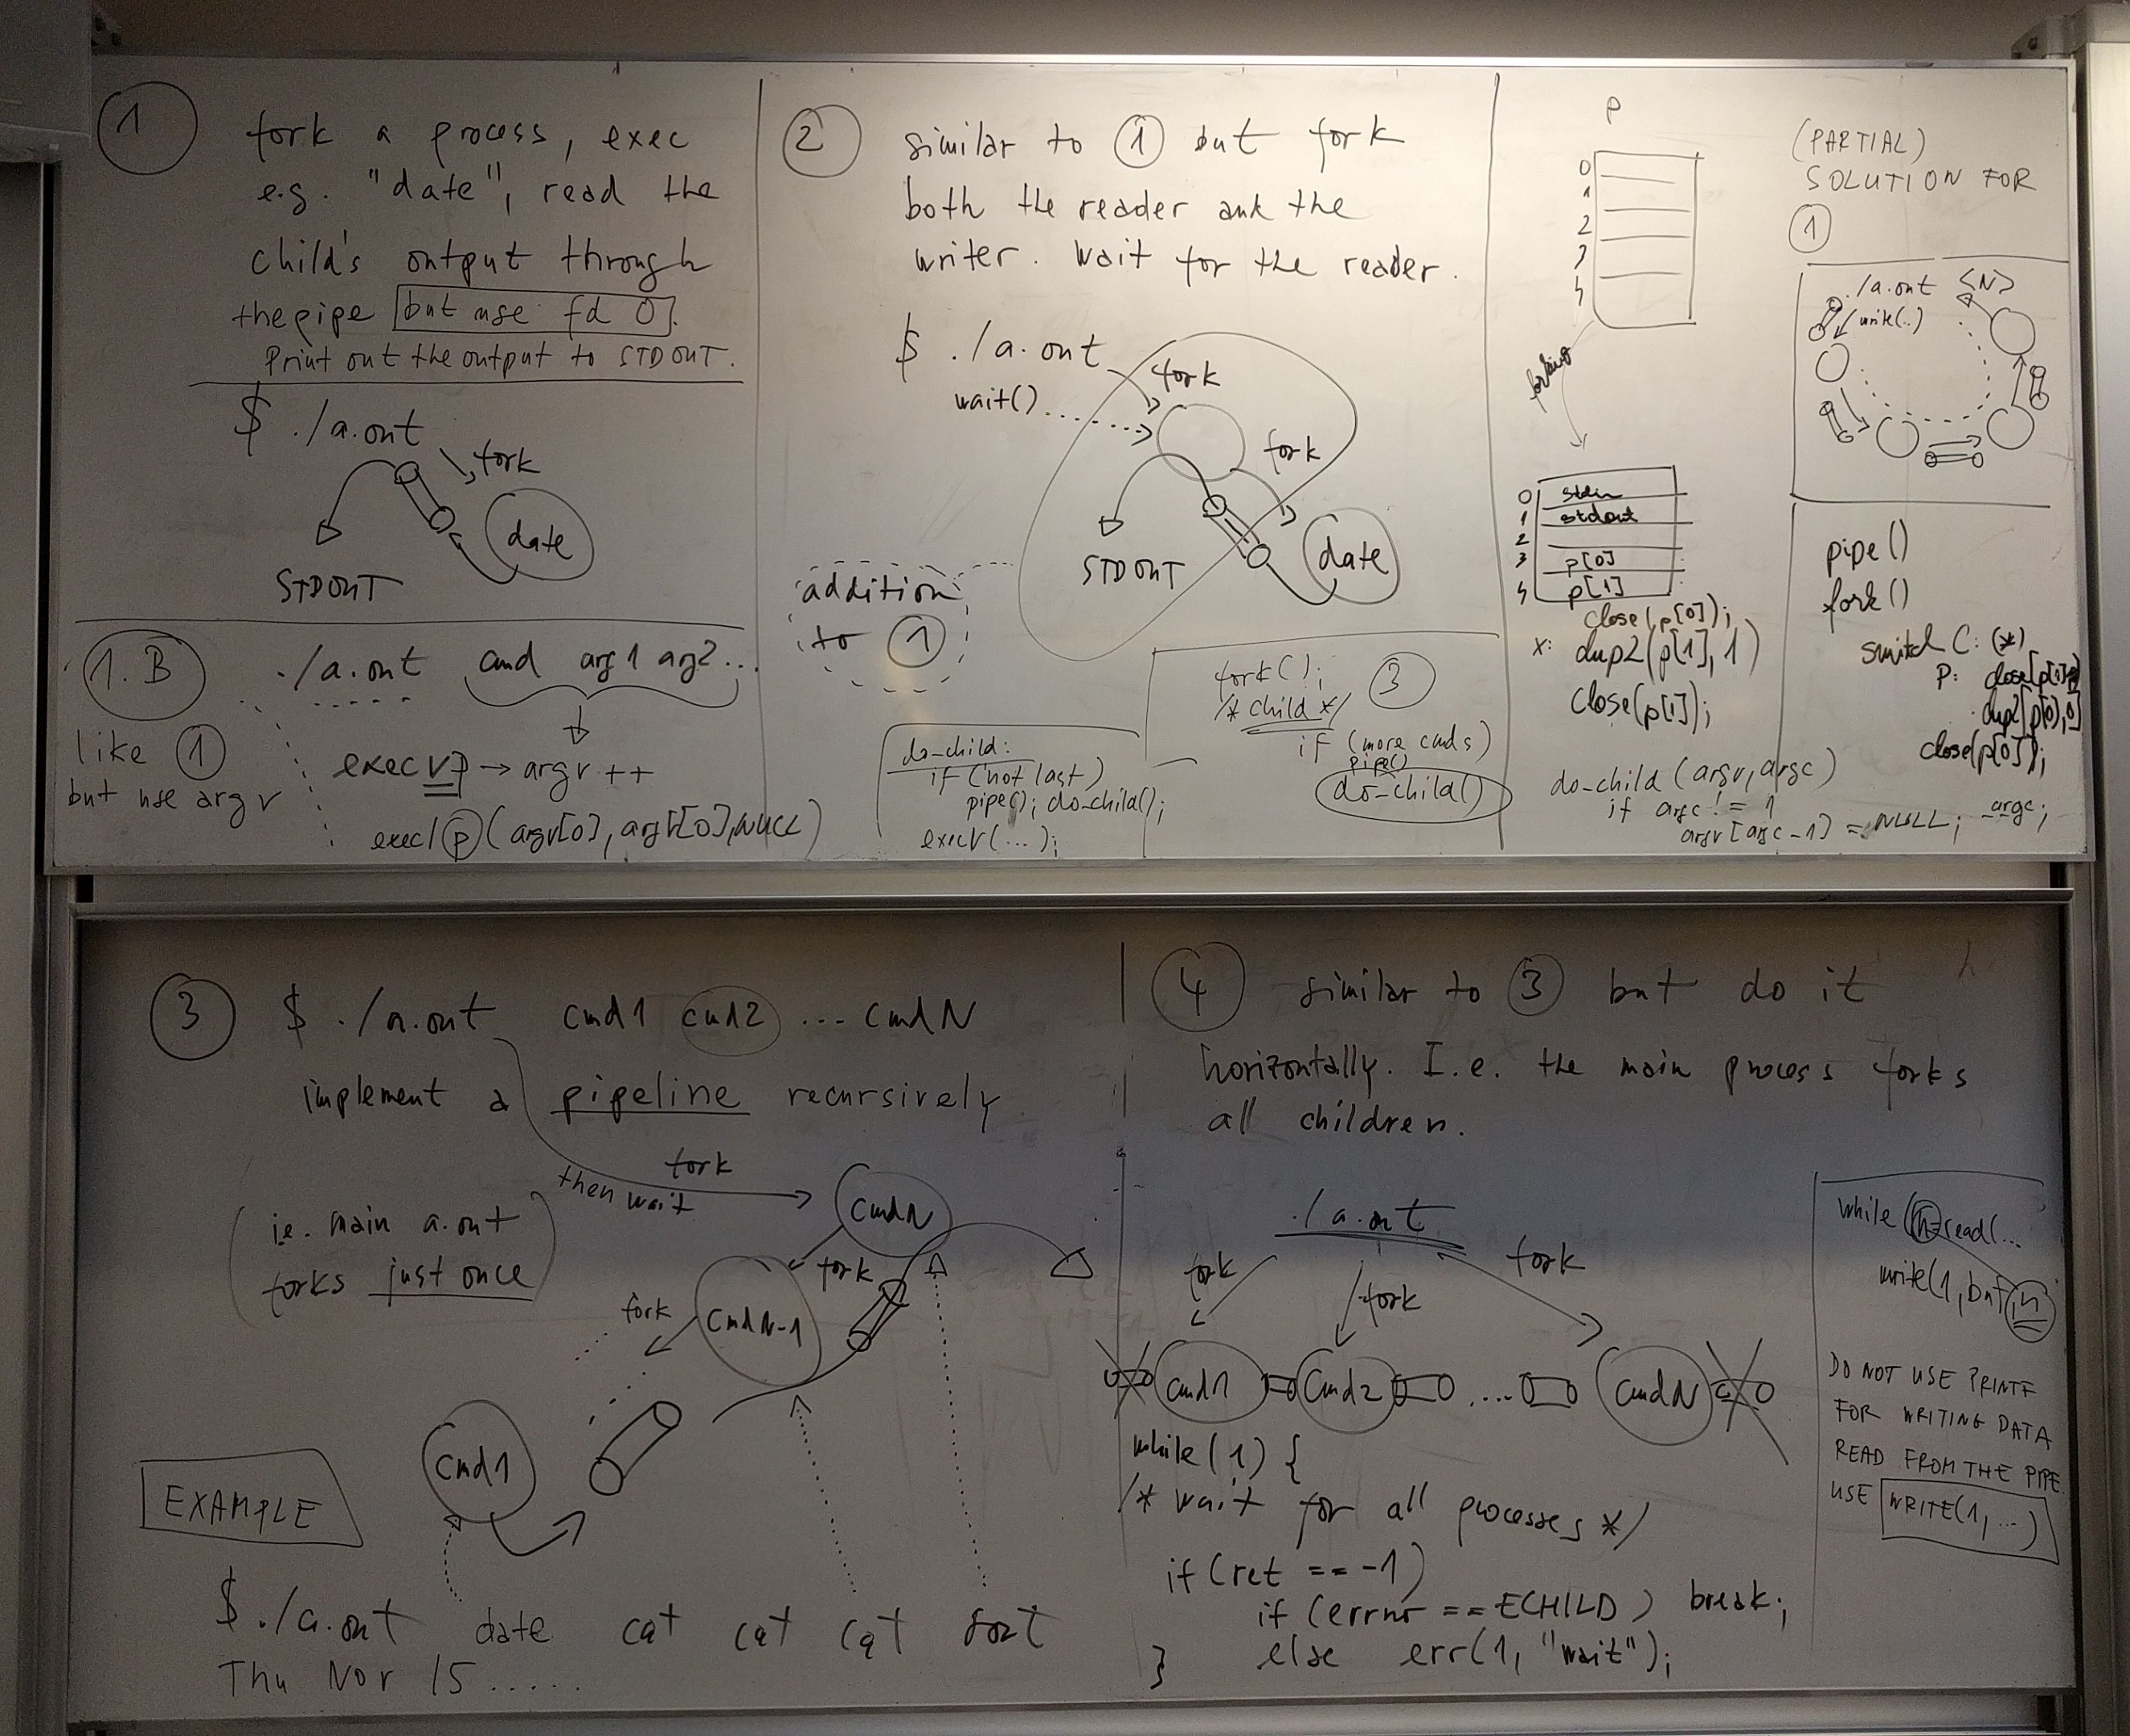 1
fork a process, exec
e.g. "date", read the
child's output through
the pipe but use fd 0.
Print out the output to STDOUT.
$ ./a.out
fork
date
STDOUT
1.B
./a.out cmd arg1 arg2...
like 1
but use argv
execvp → argv++
execlp(argv[0], argv[0], NULL)
2
similar to 1 but fork
both the reader and the
writer. Wait for the reader.
$ ./a.out
fork
wait()
fork
STDOUT
date
addition
to 1
do_child:
if (not last)
pipe(); do_child();
execv(...);
fork(); 3
/* child */
if (more cmds)
pipe()
do_child()
P
0
1
2
3
4
0 stdin
1 stdout
2
3 p[0]
4 p[1]
close(p[0]);
x: dup2(p[1], 1)
close(p[1]);
(PARTIAL)
SOLUTION FOR
1
./a.out <N>
write(..)
pipe()
fork()
switch C: (*)
P: close(p[1])
dup2(p[0], 0)
close(p[0]);
do_child(argv, argc)
if argc != 1
argv[argc-1] = NULL; --argc;
3
$ ./a.out cmd1 cmd2 ... cmdN
implement a pipeline recursively
fork
then wait
(i.e. main a.out
forks just once)
cmdN
fork
cmdN-1
fork
cmd1
EXAMPLE
$ ./a.out date cat cat cat sort
Thu Nov 15.....
4
similar to 3 but do it
horizontally. I.e. the main process forks
all children.
./a.out
fork
fork
fork
cmd1 cmd2 ... cmdN
while(1) {
/* wait for all processes */
if (ret == -1)
if (errno == ECHILD) break;
else err(1, "wait");
}
while (n=read(...
write(1, buf, n)
DO NOT USE PRINTF
FOR WRITING DATA
READ FROM THE PIPE.
USE WRITE(1, ...)